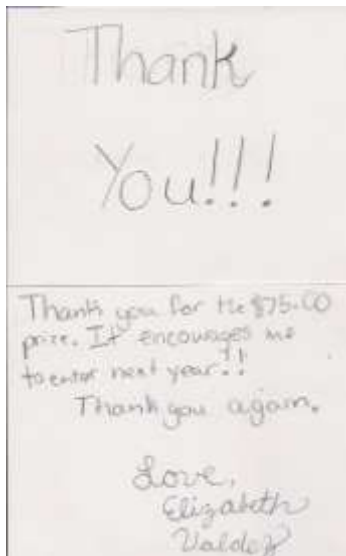 Thank
You!!!
Thank you for the $75.00
prize. It encourages me
to enter next year!!
Thank you again.
Love,
Elizabeth
Valdez